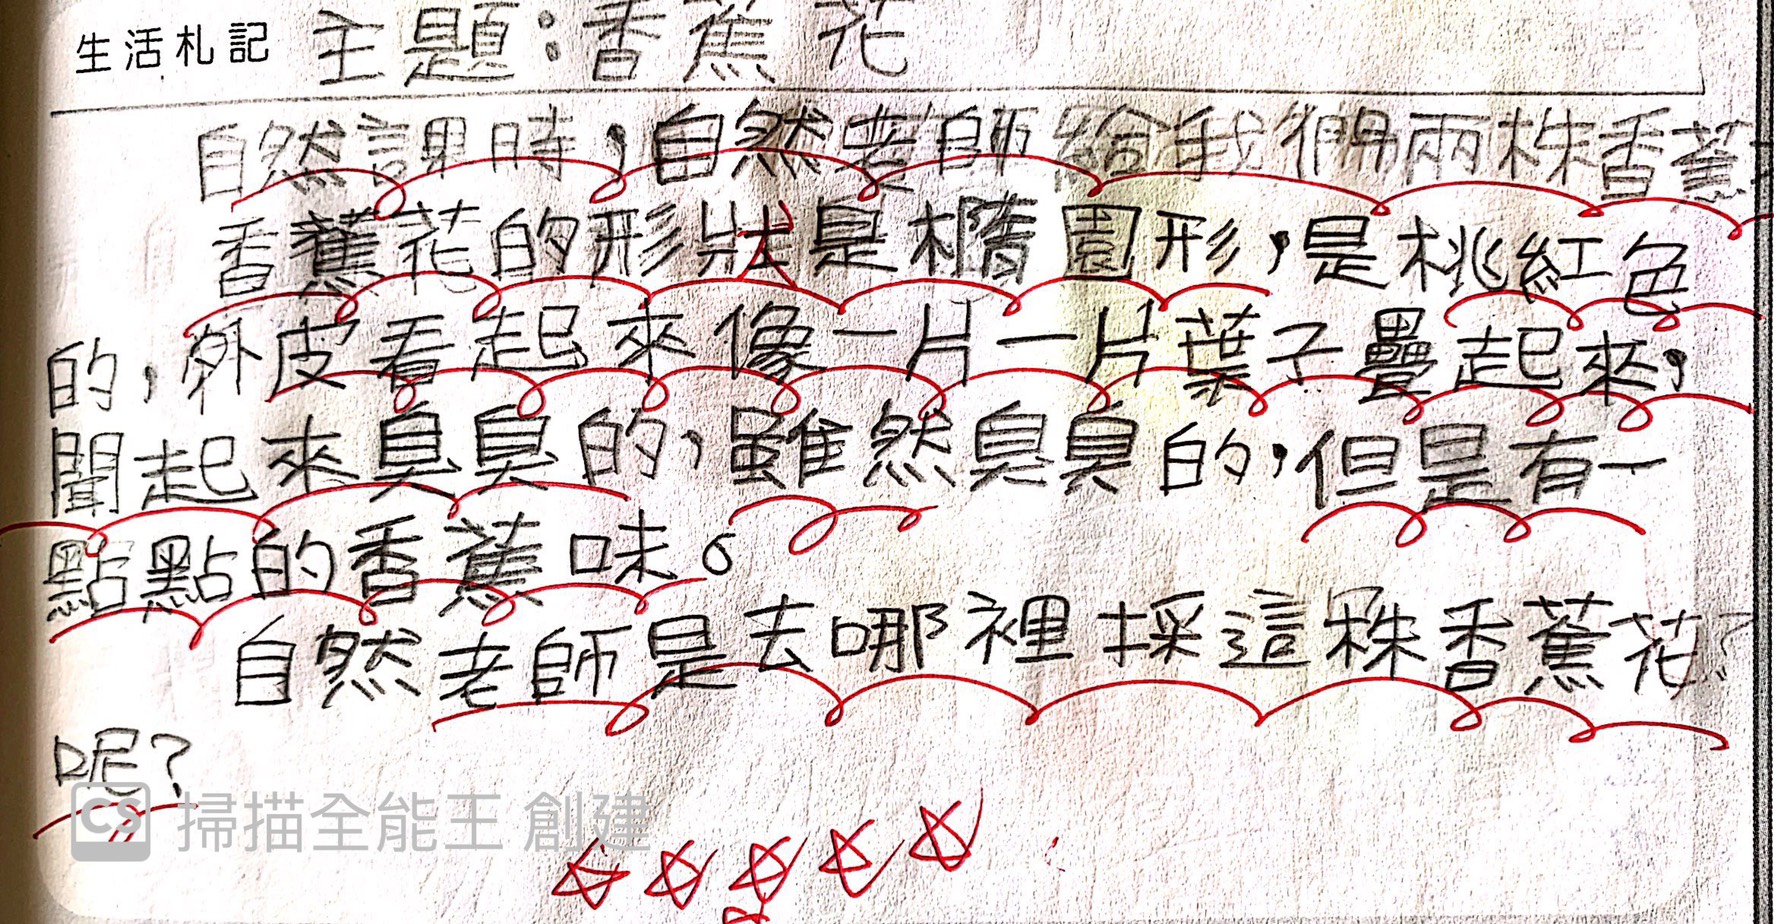 生活札記 主題：香蕉花
自然課時，自然老師給我們兩株香蕉
香蕉花的形狀是橢圓形，是桃紅色
的，外皮看起來像一片一片葉子疊起來，
聞起來臭臭的，雖然臭臭的，但是有一
點點的香蕉味。
自然老師是去哪裡採這株香蕉花？
呢？
CS 掃描全能王 創建